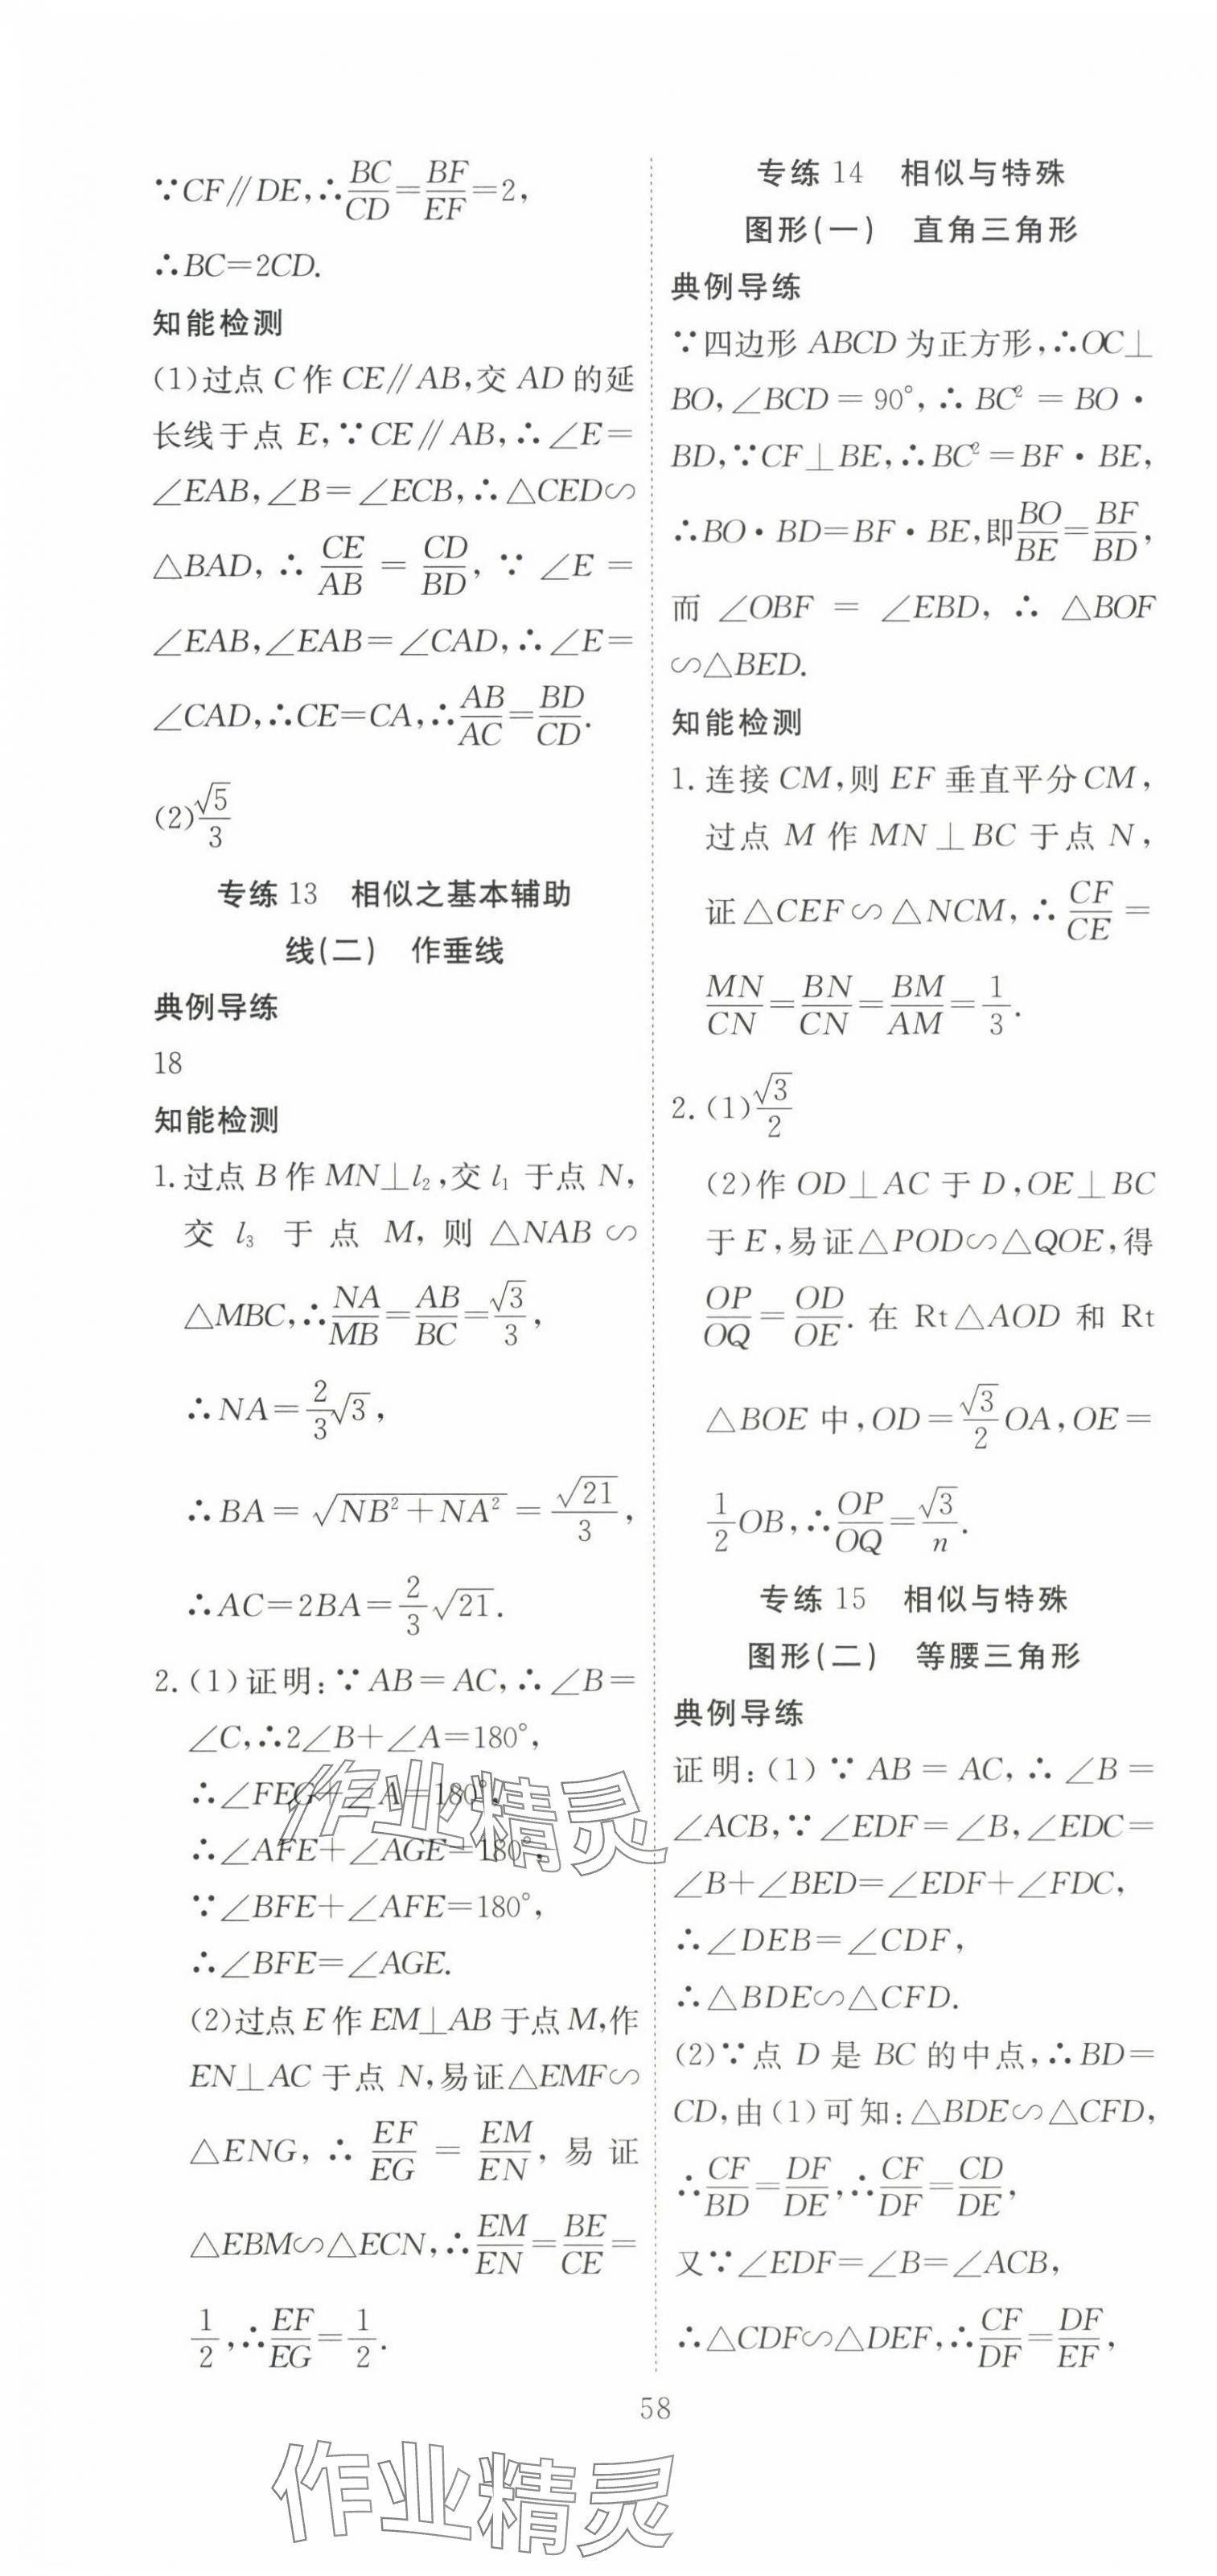 ∵CF∥DE,∴BC/CD=BF/EF=2,
∴BC=2CD.
知能检测
(1)过点C作CE∥AB,交AD的延
长线于点E,∵CE∥AB,∴∠E=
∠EAB,∠B=∠ECB,∴△CED∽
△BAD,∴CE/AB=CD/BD,∵∠E=
∠EAB,∠EAB=∠CAD,∴∠E=
∠CAD,∴CE=CA,∴AB/AC=BD/CD.
(2)√5/3
专练13 相似之基本辅助
线(二) 作垂线
典例导练
18
知能检测
1.过点B作MN⊥l₂,交l₁于点N,
交l₃于点M,则△NAB∽
△MBC,∴NA/MB=AB/BC=√3/3,
∴NA=2/3√3,
∴BA=√(NB²+NA²)=√21/3,
∴AC=2BA=2/3√21.
2.(1)证明:∵AB=AC,∴∠B=
∠C,∴2∠B+∠A=180°,
∴∠FEG+∠A=180°,
∴∠AFE+∠AGE=180°,
∵∠BFE+∠AFE=180°,
∴∠BFE=∠AGE.
(2)过点E作EM⊥AB于点M,作
EN⊥AC于点N,易证△EMF∽
△ENG,∴EF/EG=EM/EN,易证
△EBM∽△ECN,∴EM/EN=BE/CE=
1/2,∴EF/EG=1/2.
专练14 相似与特殊
图形(一) 直角三角形
典例导练
∵四边形ABCD为正方形,∴OC⊥
BO,∠BCD=90°,∴BC²=BO·
BD,∵CF⊥BE,∴BC²=BF·BE,
∴BO·BD=BF·BE,即BO/BE=BF/BD,
而∠OBF=∠EBD,∴△BOF
∽△BED.
知能检测
1.连接CM,则EF垂直平分CM,
过点M作MN⊥BC于点N,
证△CEF∽△NCM,∴CF/CE=
MN/CN=BN/CN=BM/AM=1/3.
2.(1)√3/2
(2)作OD⊥AC于D,OE⊥BC
于E,易证△POD∽△QOE,得
OP/OQ=OD/OE.在Rt△AOD和Rt
△BOE中,OD=√3/2OA,OE=
1/2OB,∴OP/OQ=√3/n.
专练15 相似与特殊
图形(二) 等腰三角形
典例导练
证明:(1)∵AB=AC,∴∠B=
∠ACB,∵∠EDF=∠B,∠EDC=
∠B+∠BED=∠EDF+∠FDC,
∴∠DEB=∠CDF,
∴△BDE∽△CFD.
(2)∵点D是BC的中点,∴BD=
CD,由(1)可知:△BDE∽△CFD,
∴CF/BD=DF/DE,∴CF/DF=CD/DE,
又∵∠EDF=∠B=∠ACB,
∴△CDF∽△DEF,∴CF/DF=DF/EF,
58
作业精灵
作业精灵